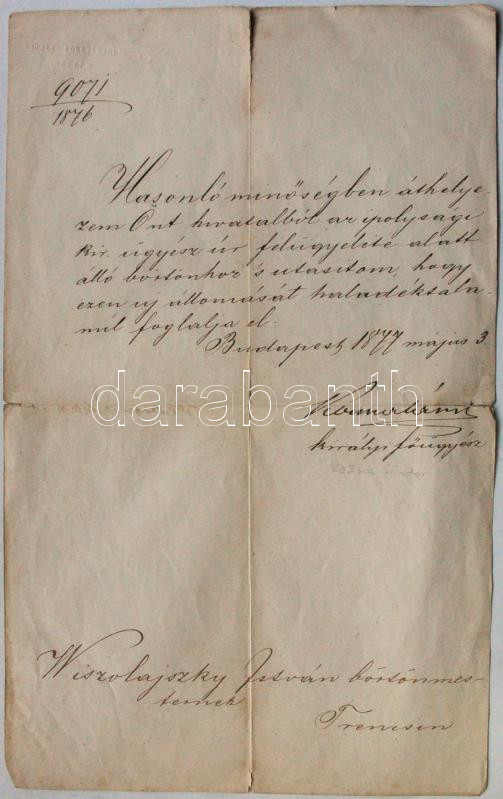 9071
1876
Hasonló minőségben áthelye-
zem Önt hivatalból az ipolysági
kir. ügyész úr felügyelete alatt
álló börtönhöz s utasítom, hogy
ezen uj állomását haladéktala-
nul foglalja el.
Budapest, 1877 május 3.
darabanth
királyi főügyész
Wiszolajszky István börtönmes-
ternek
Trencsen